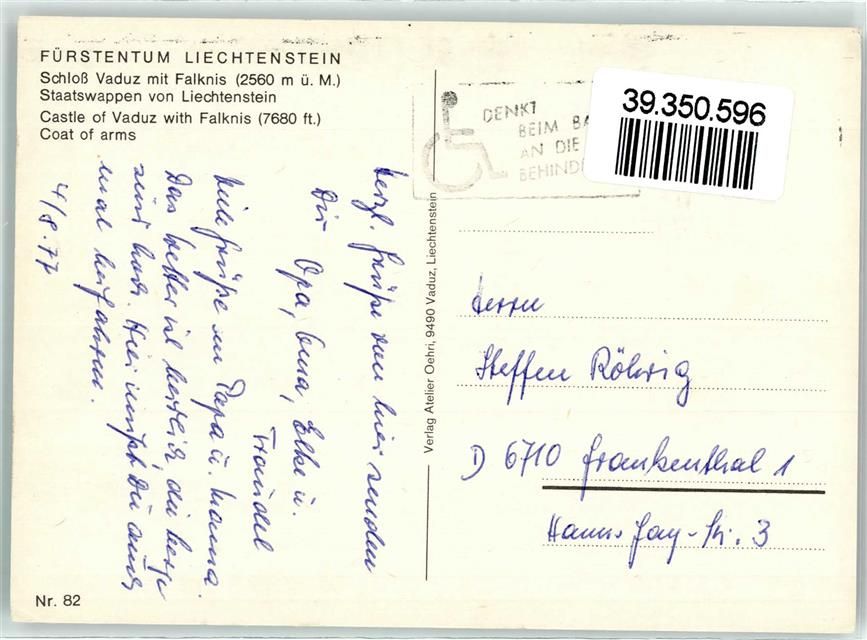 FÜRSTENTUM LIECHTENSTEIN
Schloß Vaduz mit Falknis (2560 m ü. M.)
Staatswappen von Liechtenstein
Castle of Vaduz with Falknis (7680 ft.)
Coat of arms
DENKT
BEIM BA
AN DIE
BEHIND
39.350.596
Herzl. Grüße von hier senden
Dir Opa, Oma, Elke u.
Traudel
Viele Grüße an Papa u. Mama.
Das Wetter ist herrlich, die Berge
sind hoch. Hier müßt Du auch
mal hinfahren.
4/8.77
Verlag Atelier Oehri, 9490 Vaduz, Liechtenstein
Herrn
Steffen Röhrig
D 6710 Frankenthal 1
Hanns-Fay-Str. 3
Nr. 82